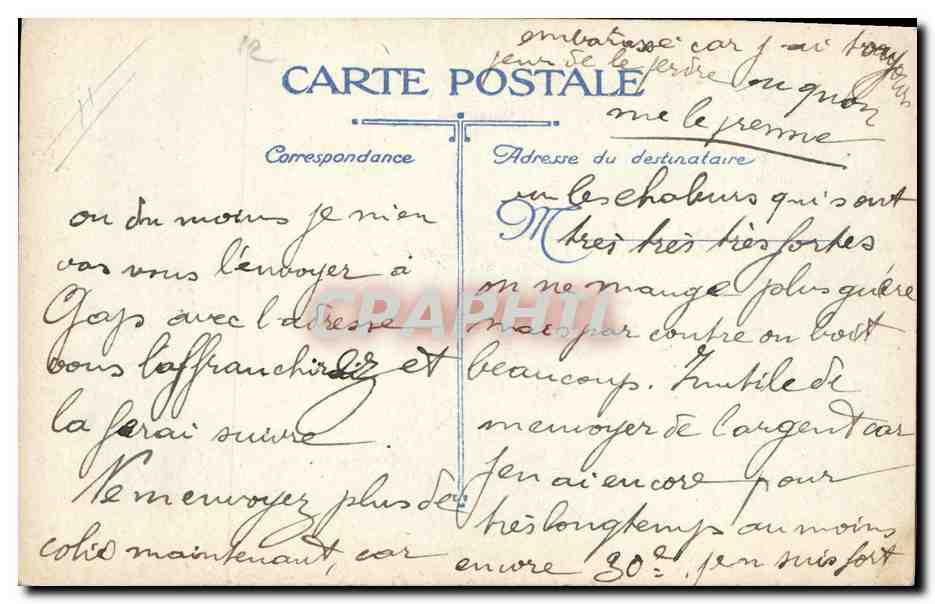 CARTE POSTALE
Correspondance
ou du moins je
vas vous l'envoyer à
Gap avec l'adresse
vous l'affranchirez et
la ferai suivre.
Ne m'envoyez plus de
colis maintenant, car
Adresse du destinataire
M
les chaleurs qui sont
très très très fortes
on ne mange plus guère
mais par contre on boit
beaucoup. Inutile de
m'envoyer de l'argent car
j'en ai encore pour
très longtemps au moins
encore 30 j'en suis fort
embarassé car j'ai toujours
peur de le perdre ou qu'on
me le prenne
CRAPHIL